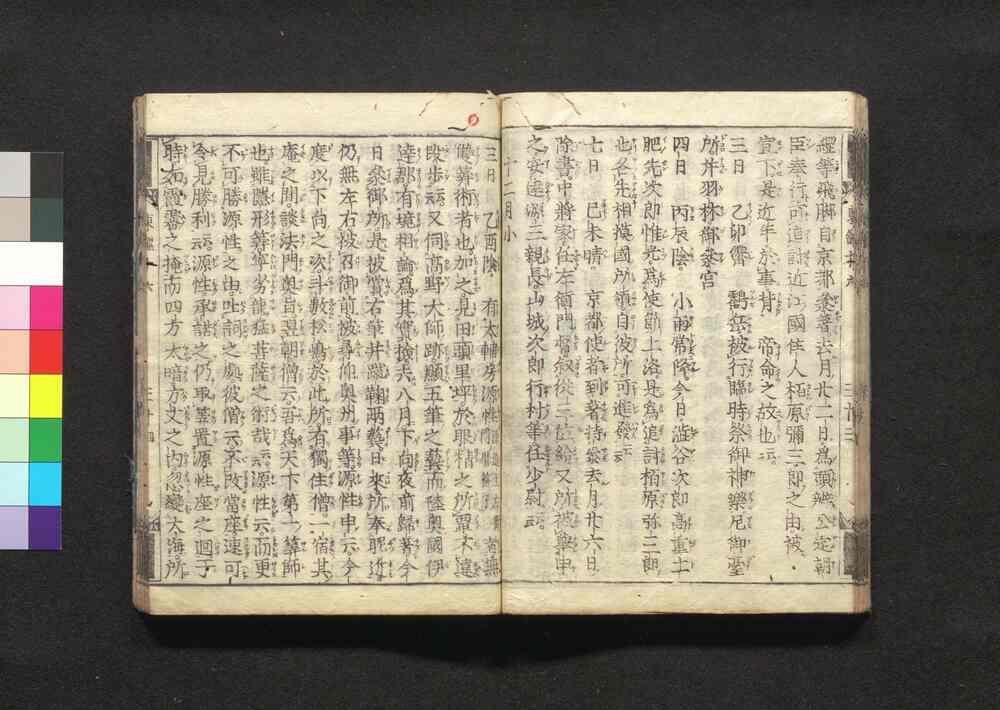 經等飛脚自京都參著去月廿二日爲頭辨公定朝
臣奉行可追討近江國住人柏原彌三郎之由被
宣下是近年於事背 帝命之故也云
三日 乙卯霽 鶴岳被行臨時祭御神樂尼御臺
所并羽林御參宮
四日 丙辰陰 小雨常降今日澁谷次郎高重土
肥先次郎惟光爲使節上洛是爲追討柏原弥三郎
也各先相摸國所領自彼所可進發云
七日 己未晴 京都使者到著持參去月廿六日
除書中將家任左衛門督叙從三位給又所被擧申
之安達源三親長山城次郎行村等任少尉云
十二月小
三日 乙酉陰 有太輔房源性
雙算術者也加之見田頭里坪於眼精之所覃不違
段歩云又伺高野大師跡顯五筆之藝而陸奥國伊
達郡有境相論爲其實撿去八月下向夜前歸著今
日參御所是被賞右筆并蹴鞠兩藝日來所奉昵近
仍無左右被召御前被尋仰奥州事等源性申云今
度以下向之次斗藪松嶋於此所有獨住僧一宿其
庵之間談法門奥旨翌朝僧云吾爲天下第一算師
也雖隱形算寧劣龍猛菩薩之術哉云源性云而更
不可勝源性之由吐詞之處彼僧云不改當座速可
令見勝利云源性承諾之仍取筭置源性座之廻于
時如霞霧之掩而四方太暗方丈之内忽變大海所